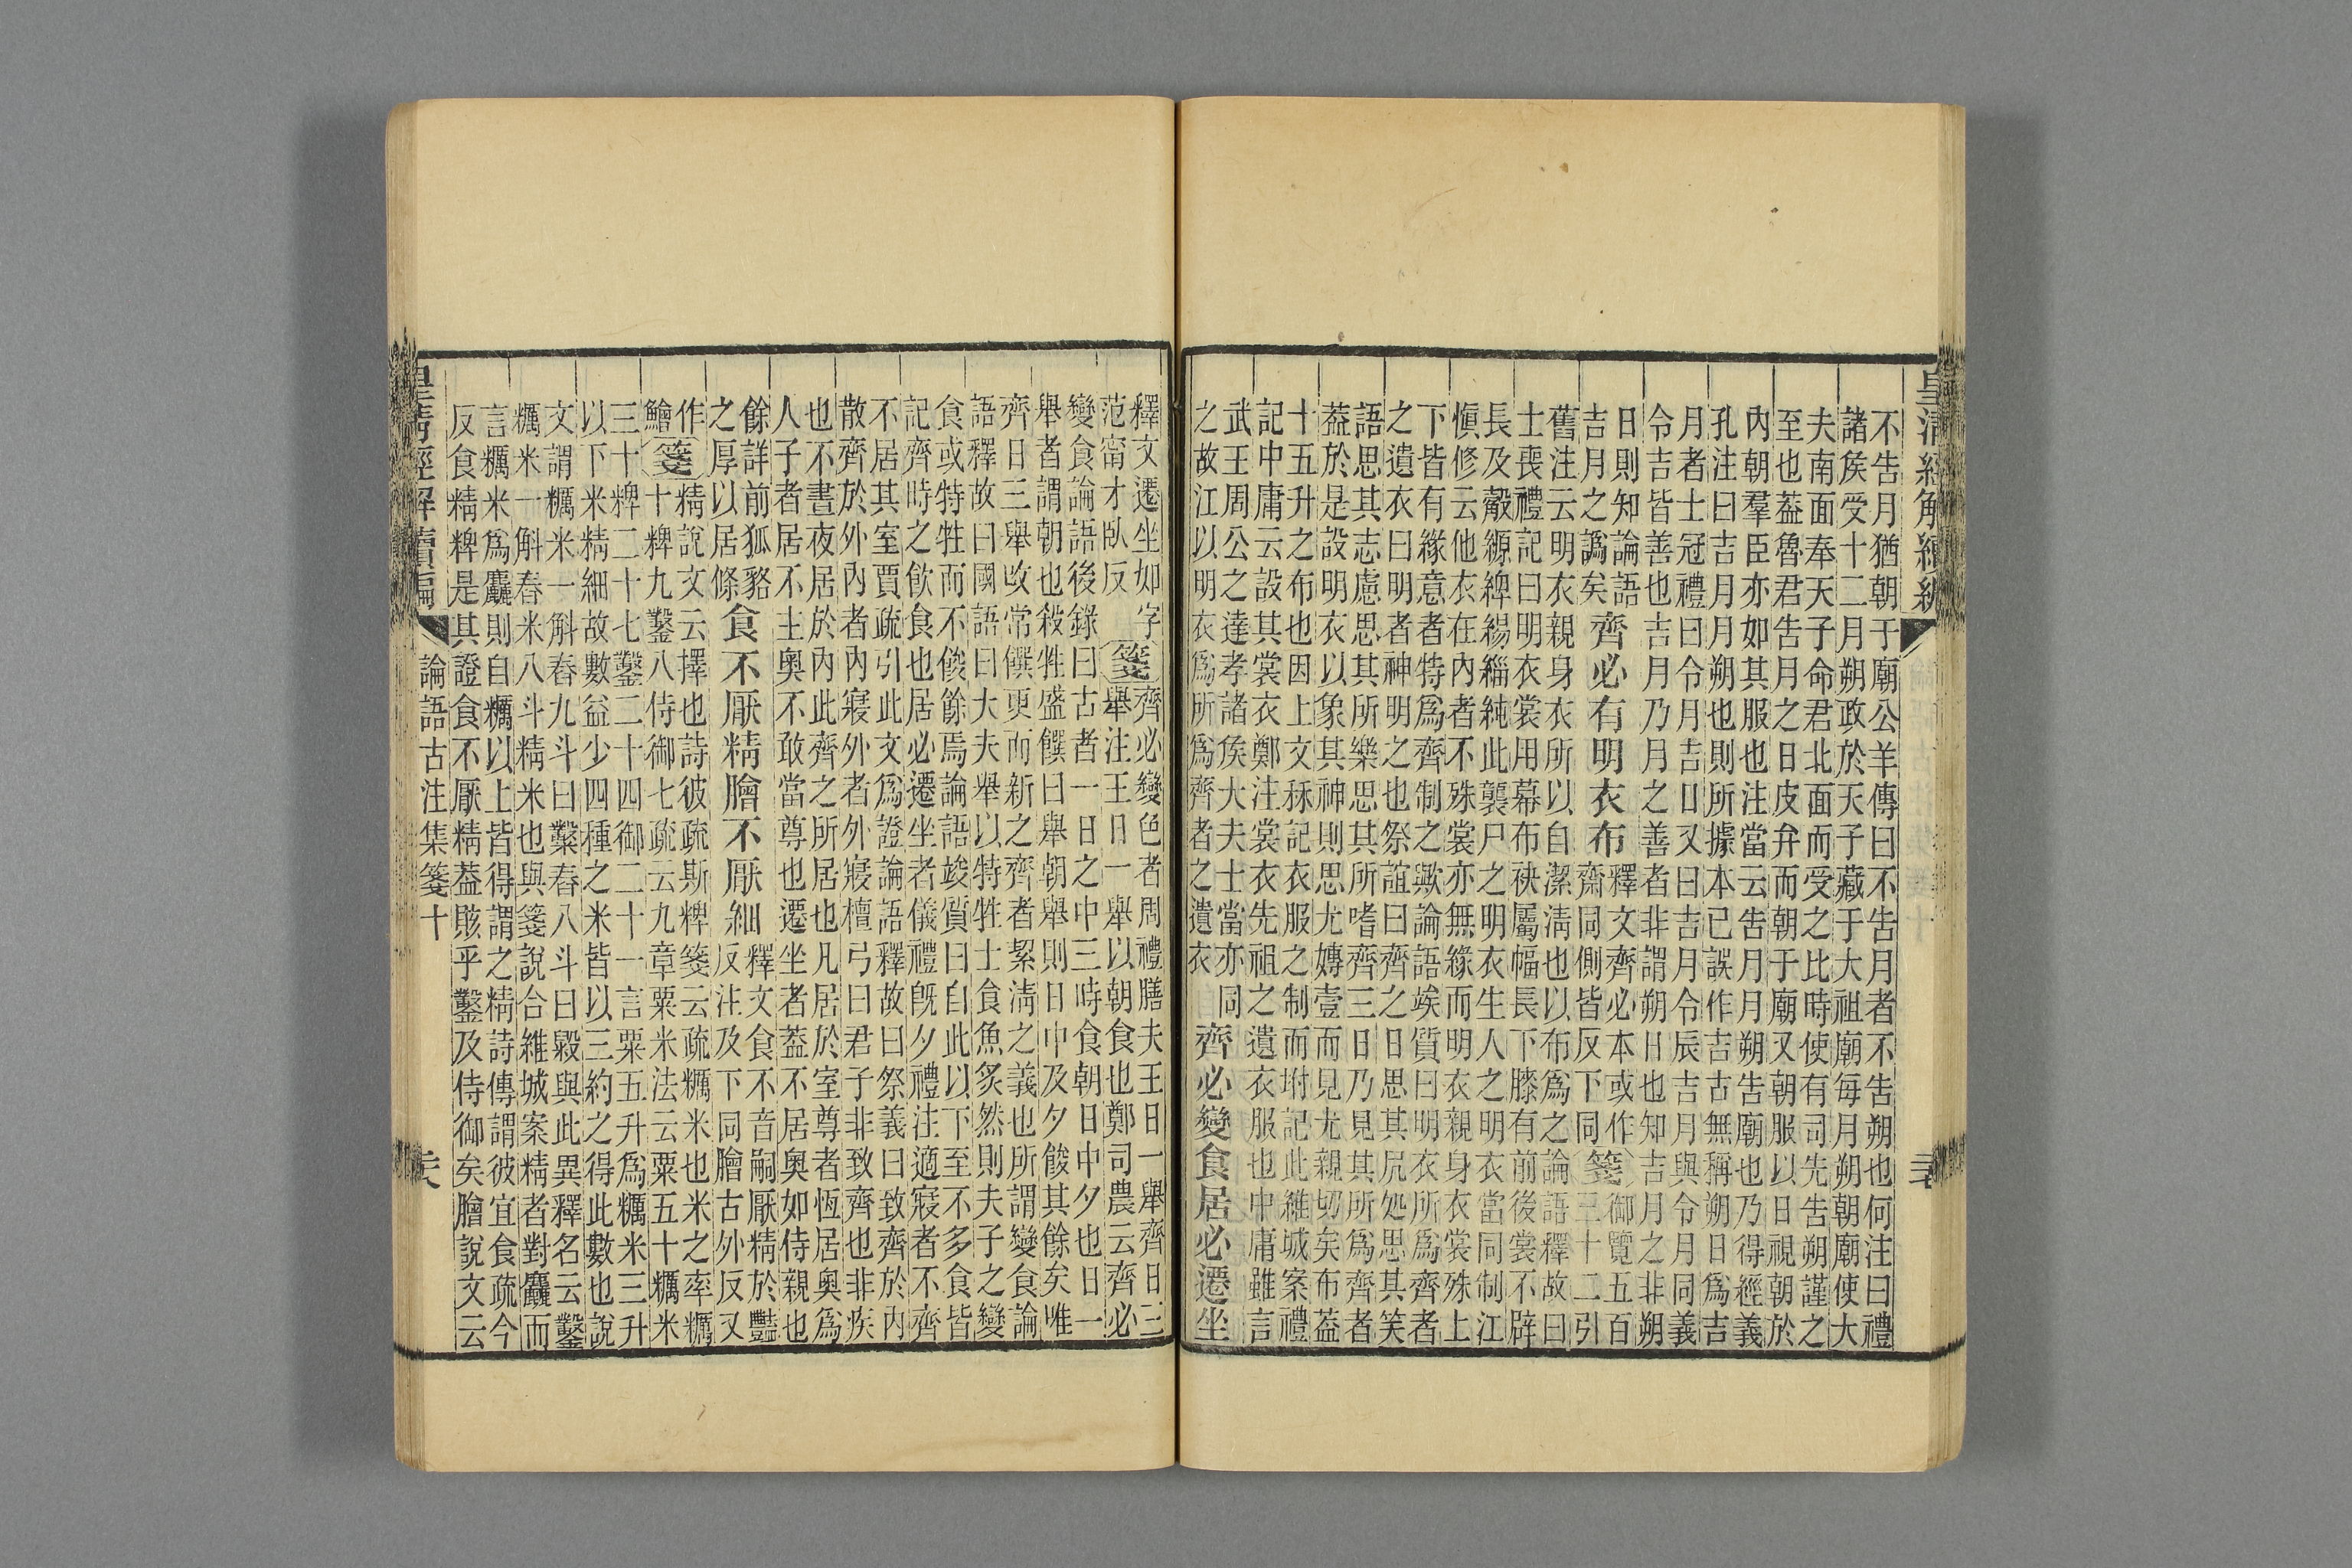 皇清經解續編
不告月猶朝于廟公羊傳曰不告月者不告朔也何注曰禮
諸矦受十二月朔政於天子藏于大祖廟每月朔朝廟使大
夫南面奉天子命君北面而受之比時使有司先告朔謹之
至也葢魯君告月之日皮弁而朝于廟又朝服以日視朝於
內朝羣臣亦如其服也注當云告月月朔告廟也乃得經義
孔注曰吉月月朔也則所據本已誤作吉古無稱朔日爲吉
月者士冠禮曰令月吉日又曰吉月令辰吉月與令月同義
令吉皆善也吉月乃月之善者非謂朔日也知吉月之非朔
日則知論語
吉月之譌矣
齊必有明衣布
釋文齊必本或作
齋同側皆反下同
箋
御覽五百
三十二引
舊注云明衣親身衣所以自潔淸也以布爲之論語釋故曰
士喪禮記曰明衣裳用幕布袂屬幅長下膝有前後裳不辟
長及觳縓綼緆緇純此襲尸之明衣生人之明衣當同制江
愼修云他衣在內者不殊裳亦無緣而明衣親身衣裳殊上
下皆有緣意者特爲齊制之歟論語竢質曰明衣所爲齊者
之遺衣曰明者神明之也祭誼曰齊之日思其凥処思其笑
語思其志慮思其所樂思其所嗜齊三日乃見其所爲齊者
葢於是設明衣以象其神則思尤嫥壹而見尤親㓞矣布葢
十五升之布也因上文秝記衣服之制而坿記此維城案禮
記中庸云設其裳衣鄭注裳衣先祖之遺衣服也中庸雖言
武王周公之達孝諸侯大夫士當亦同
之故江以明衣爲所爲齊者之遺衣
齊必變食居必遷坐
釋文遷坐如字
范甯才臥反
箋
齊必變色者周禮膳夫王日一舉齊日三
舉注王日一舉以朝食也鄭司農云齊必
變食論語後錄曰古者一日之中三時食朝日中夕也日一
舉者謂朝也殺牲盛饌曰舉朝舉則日中及夕餕其餘矣唯
齊日三舉攺常饌更而新之齊者絜淸之義也所謂變食論
語釋故曰國語曰大夫舉以特牲士食魚炙然則夫子之變
食或特牲而不餕餘焉論語竢質曰自此以下至不多食皆
記齊時之飮食也居必遷坐者儀禮旣夕禮注適寢者不齊
不居其室賈疏引此文爲證論語釋故曰祭義曰致齊於內
散齊於外內者內寢外者外寢檀弓曰君子非致齊也非疾
也不晝夜居於內此齊之所居也凡居於室尊者恆居奧爲
人子者居不主奧不敢當尊也遷坐者葢不居奧如侍親也
餘詳前狐貉
之厚以居條
食不厭精膾不厭細
釋文食不音嗣厭精於豔
反注及下同膾古外反又
作
鱠
箋
精說文云擇也詩彼疏斯粺箋云疏糲米也米之率糲
十粺九鑿八侍御七疏云九章粟米法云粟五十糲米
三十粺二十七鑿二十四御二十一言粟五升爲糲米三升
以下米精細故數益少四種之米皆以三約之得此數也說
文謂糲米一斛舂九斗曰糳舂八斗曰毇與此異釋名云糳
糲米一斛舂米八斗精米也與箋說合維城案精者對麤而
言糲米爲麤則自糲以上皆得謂之精詩傳謂彼宜食疏今
反食精粺是其證食不厭精葢賅乎鑿及侍御矣膾說文云
皇清經解續編
論語古注集箋十